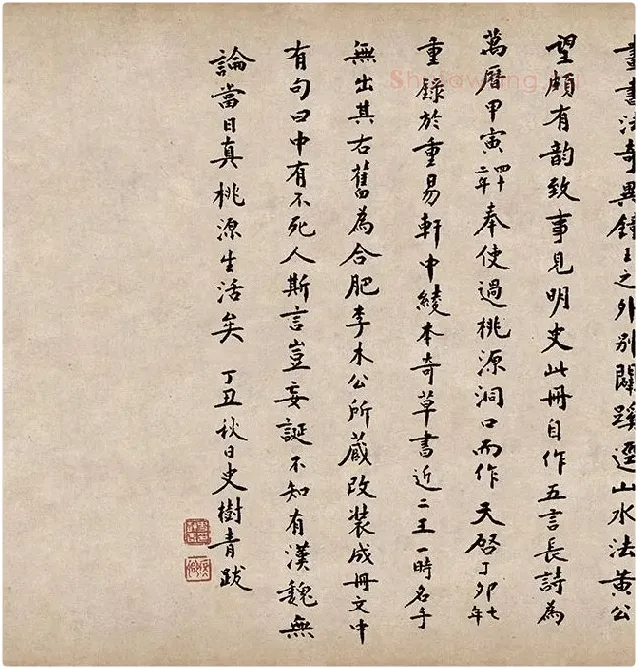 畫書法奇異鍾王之外別闢蹊逕山水法黃公
望頗有韵致事見明史此冊自作五言長詩為
萬曆甲寅四十二年奉使過桃源洞口而作天啓丁卯七年
重錄於重易軒中綾本奇草書近二王一時名手
無出其右舊為合肥李木公所藏改裝成冊文中
有句曰中有不死人斯言豈妄誕不知有漢魏無
論當日真桃源生活矣 丁丑秋日史樹青跋